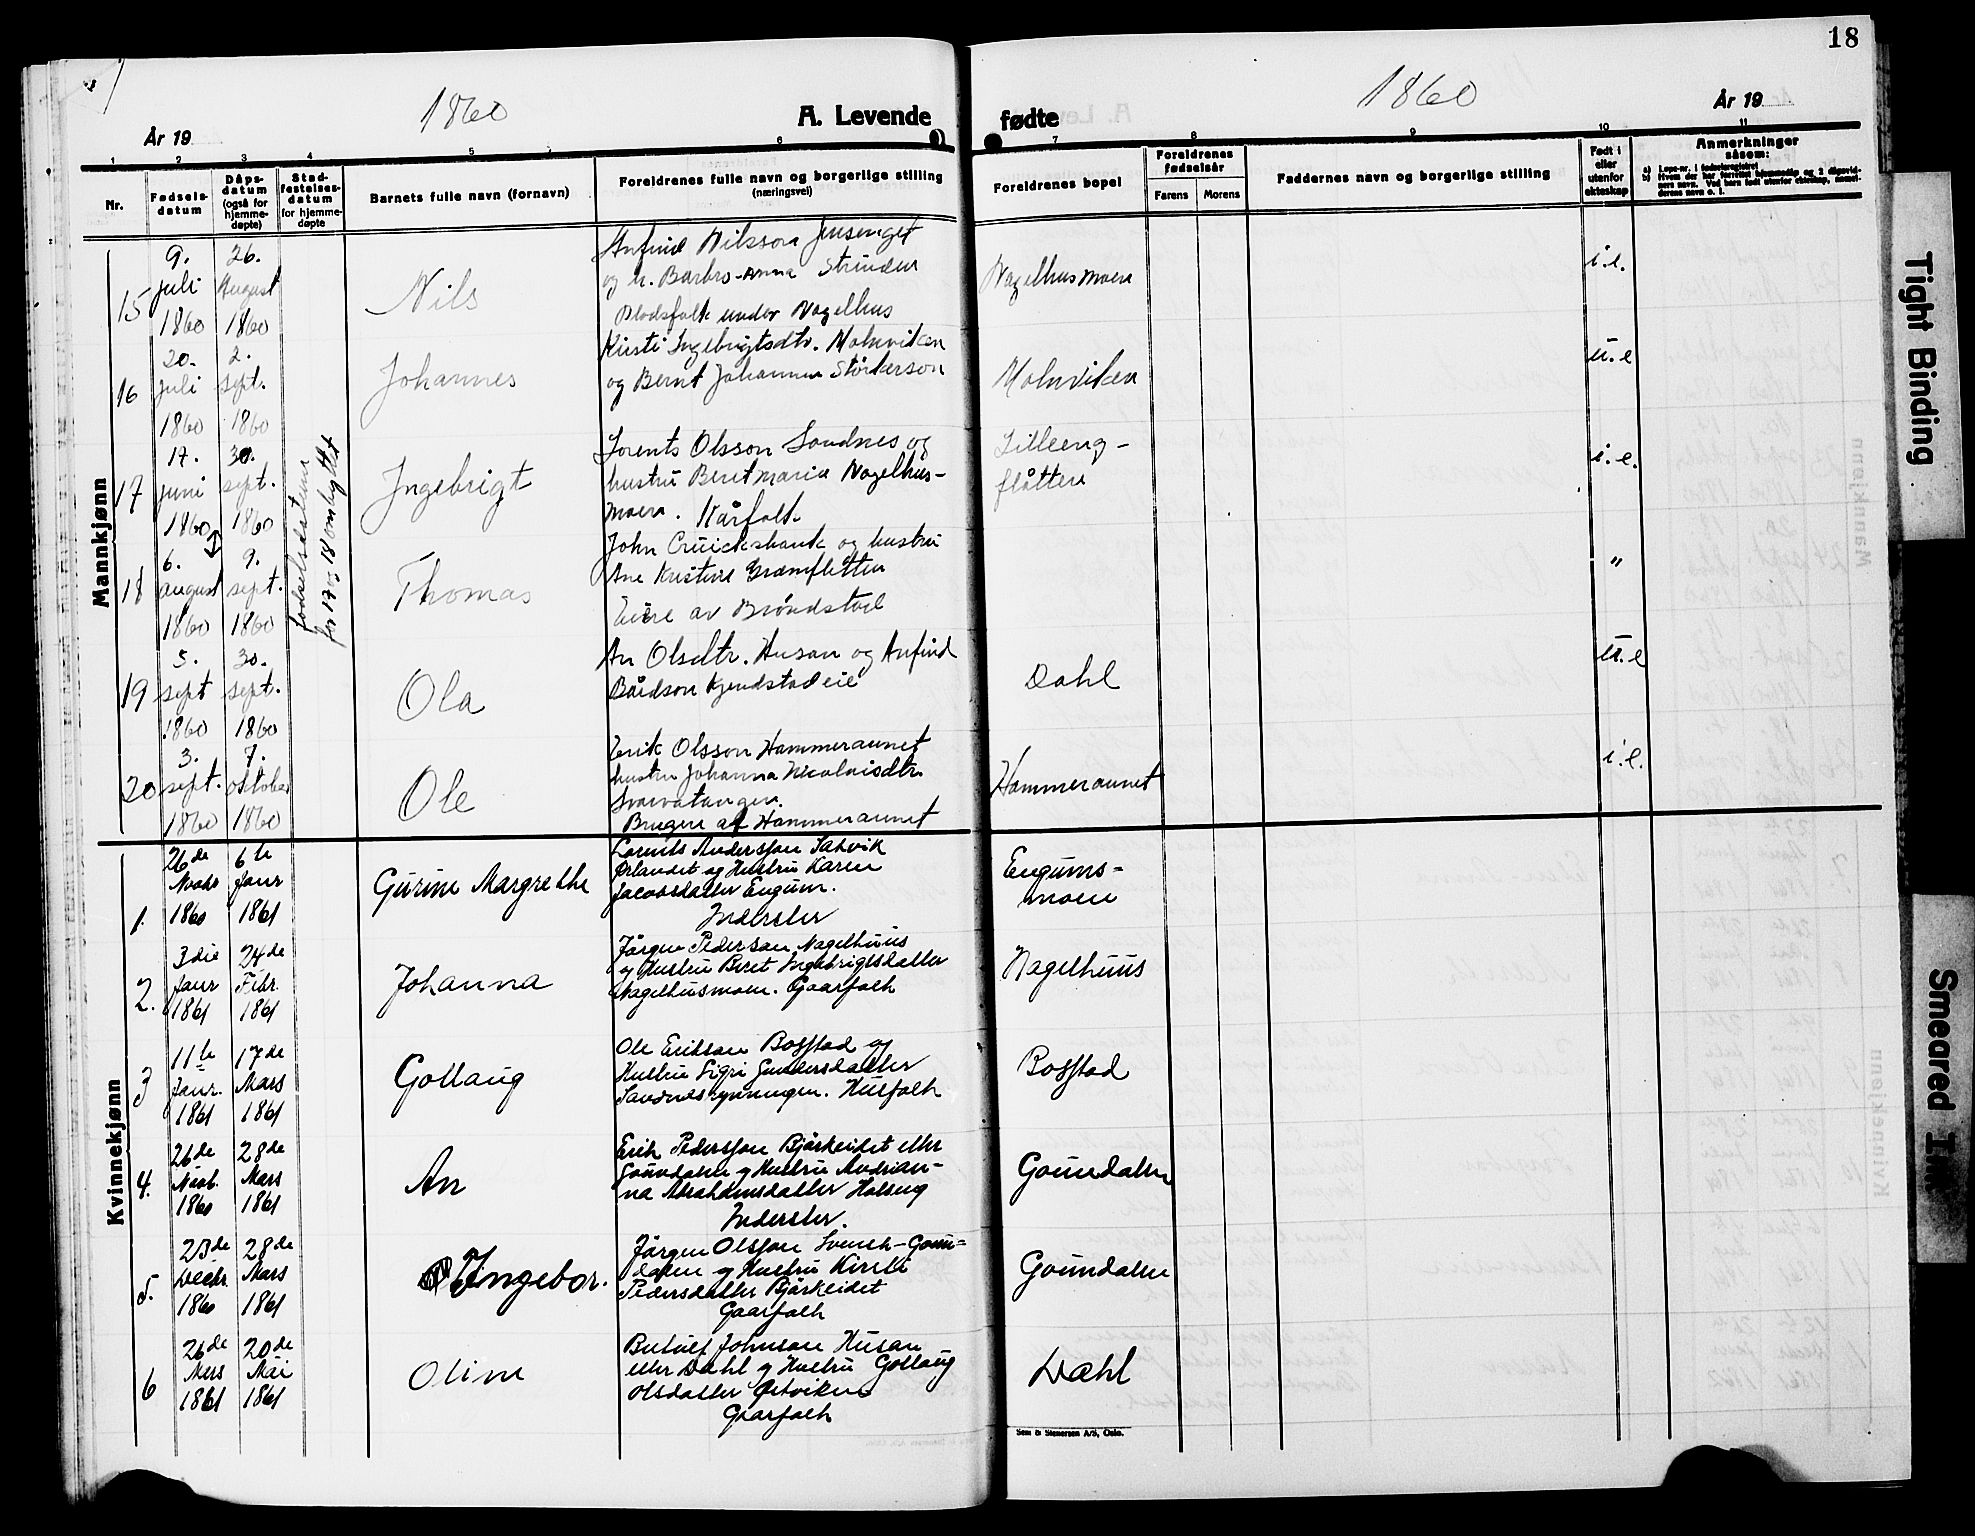 18
1860
1860
År 19
A. Levende
fødte
År 19
1 2 3 4 5 6 7 8 9 10 11
Nr.
Fødsels-
datum
Dåps-
datum
(også for
hjemme-
døpte)
Stad-
festelses-
datum
for hjemme-
døpte
Barnets fulle navn (fornavn)
Foreldrenes fulle navn og borgerlige stilling
(næringsvei)
Foreldrenes bopel
Foreldrenes
fødselsår
Farens
Morens
Faddernes navn og borgerlige stilling
Født i
eller
utenfor
ekteskap
Anmerkninger
såsom:
Mannkjønn
15
9.
juli
1860
26.
August
1860
Nils
Anfind Nilsson Jensenget
og h. Barbro-Anna Strinden
Plodsfolk under Nagelhus
Nagelhusmoen
i.e.
16
20.
juli
1860
2.
sept.
1860
Johannes
Kirsti Ingebrigtsdtr. Holmviken
og Bernt Johannes Störkerson
Holmviken
u.e
17
17.
juni
1860
30.
sept.
1860
fødselsdatum
for 17 og 18 ombyttet
Ingebrigt
Lorents Olsson Sandnes og
hustru Beretmaria Nagelhus-
moen. Kårfolk.
Lilleeng-
flåtten
i.e.
18
6.
august
1860
9.
sept.
1860
Thomas
John Cruickshank og hustru
Ane Kristine
Eiere av Brøndstad
"
19
5.
sept
1860
30.
sept.
1860
Ola
An Olsdtr. Husan og Anfind
Bårdson Kjendstadeie
Dahl
u.e
20
3.
sept.
1860
7.
oktober
1860
Ole
Erik Olsson Hammeraunet
hustru Johanna Nicolaisdtr.
Svarvatangen.
Brugere af Hammeraunet
Hammeraunet
i.e.
Kvinnekjønn
1.
26de
Novbr
1860
6te
Janr
1861
Gurine Margrethe
Lorents Anderssen Sakvik
Ørlandet og Hustru Karen
Jacobsdatter Engum.
Inderster
Engums=
moen
2.
3die
Janr
1861
24de
Febr.
1861
Johanna
Jörgen Pedersen Nagelhuus
og Hustru Beret Ingebrigtsdatter
Nagelhusmoen. Gaarfolk
Nagelhuus
3
11te
Janr.
1861
17de
Mars
1861
Gollaug
Ole Eriksen Bosstad og
Hustru Sigri Gundersdatter
Sandnesrynningen. Husfolk
Bosstad
4.
26de
Novb.
1860
28de
Mars
1861
An
Erik Pederssen Bjørkeidet eller
Gaundalen og Hustru Andrian-
na Abrahamsdatter Holseng
Inderster.
Gaundalen
5.
23de
Decbr.
1860
28de
Mars
1861
Ingebor.
Jörgen Olssen Svensk-Gaun=
dalen og Hustru Kirsti
Pedersdatter Bjørkeidet
Gaarfolk
Gaundalen
6
26de
Mars
1861
20de
Mai
1861
Oline
Botulf Johnsen Husan
eller Dahl og Hustru Gollaug
Olsdatter Østviken
Gaarfolk
Dahl
Sem & Stenersen A/S, Oslo.
Tight Binding
Smeared Ink